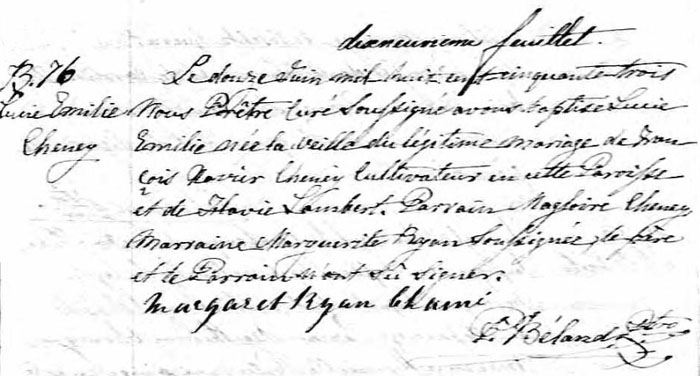 dixneuvieme feuillet.
B. 76
Lucie Emilie
Cheney
Le douze Juin mil huit cent cinquante trois
Nous Prêtre Curé Soussigné avons baptisé Lucie
Emilie née la veille du légitime mariage de Fran-
çois Xavier Cheney Cultivateur en cette Paroisse
et de Flavie Lambert. Parrain Magloire Cheney
Marraine Marguerite Ryan Soussignée, le père
et le Parrain n'ont sû signer.
Margaret Ryan
Béland Ptre